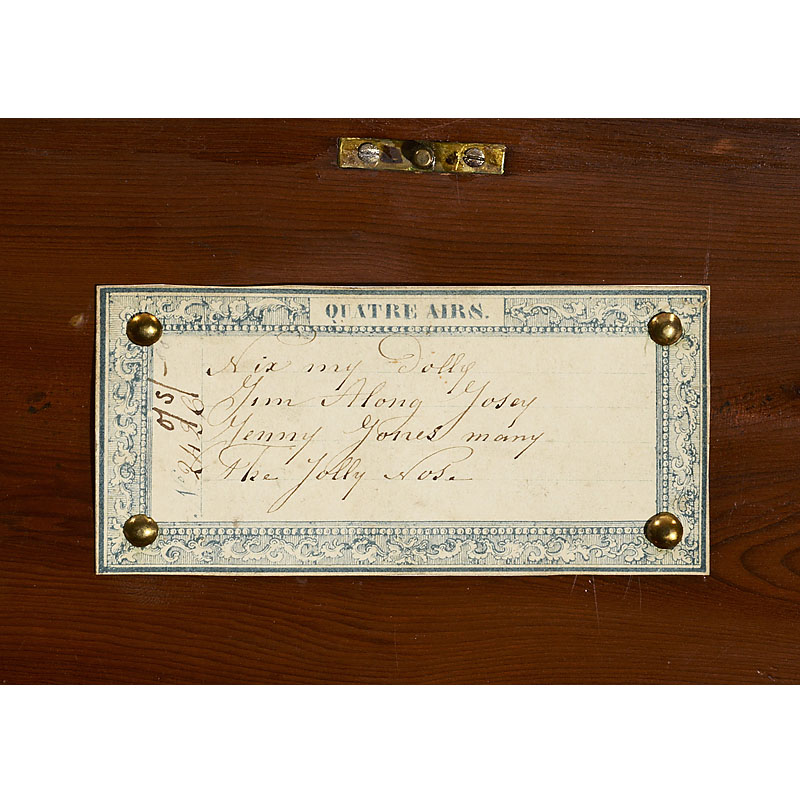 QUATRE AIRS.
Nix my Dolly
Jim Along Josey
Jenny Jones many
The Jolly Nose